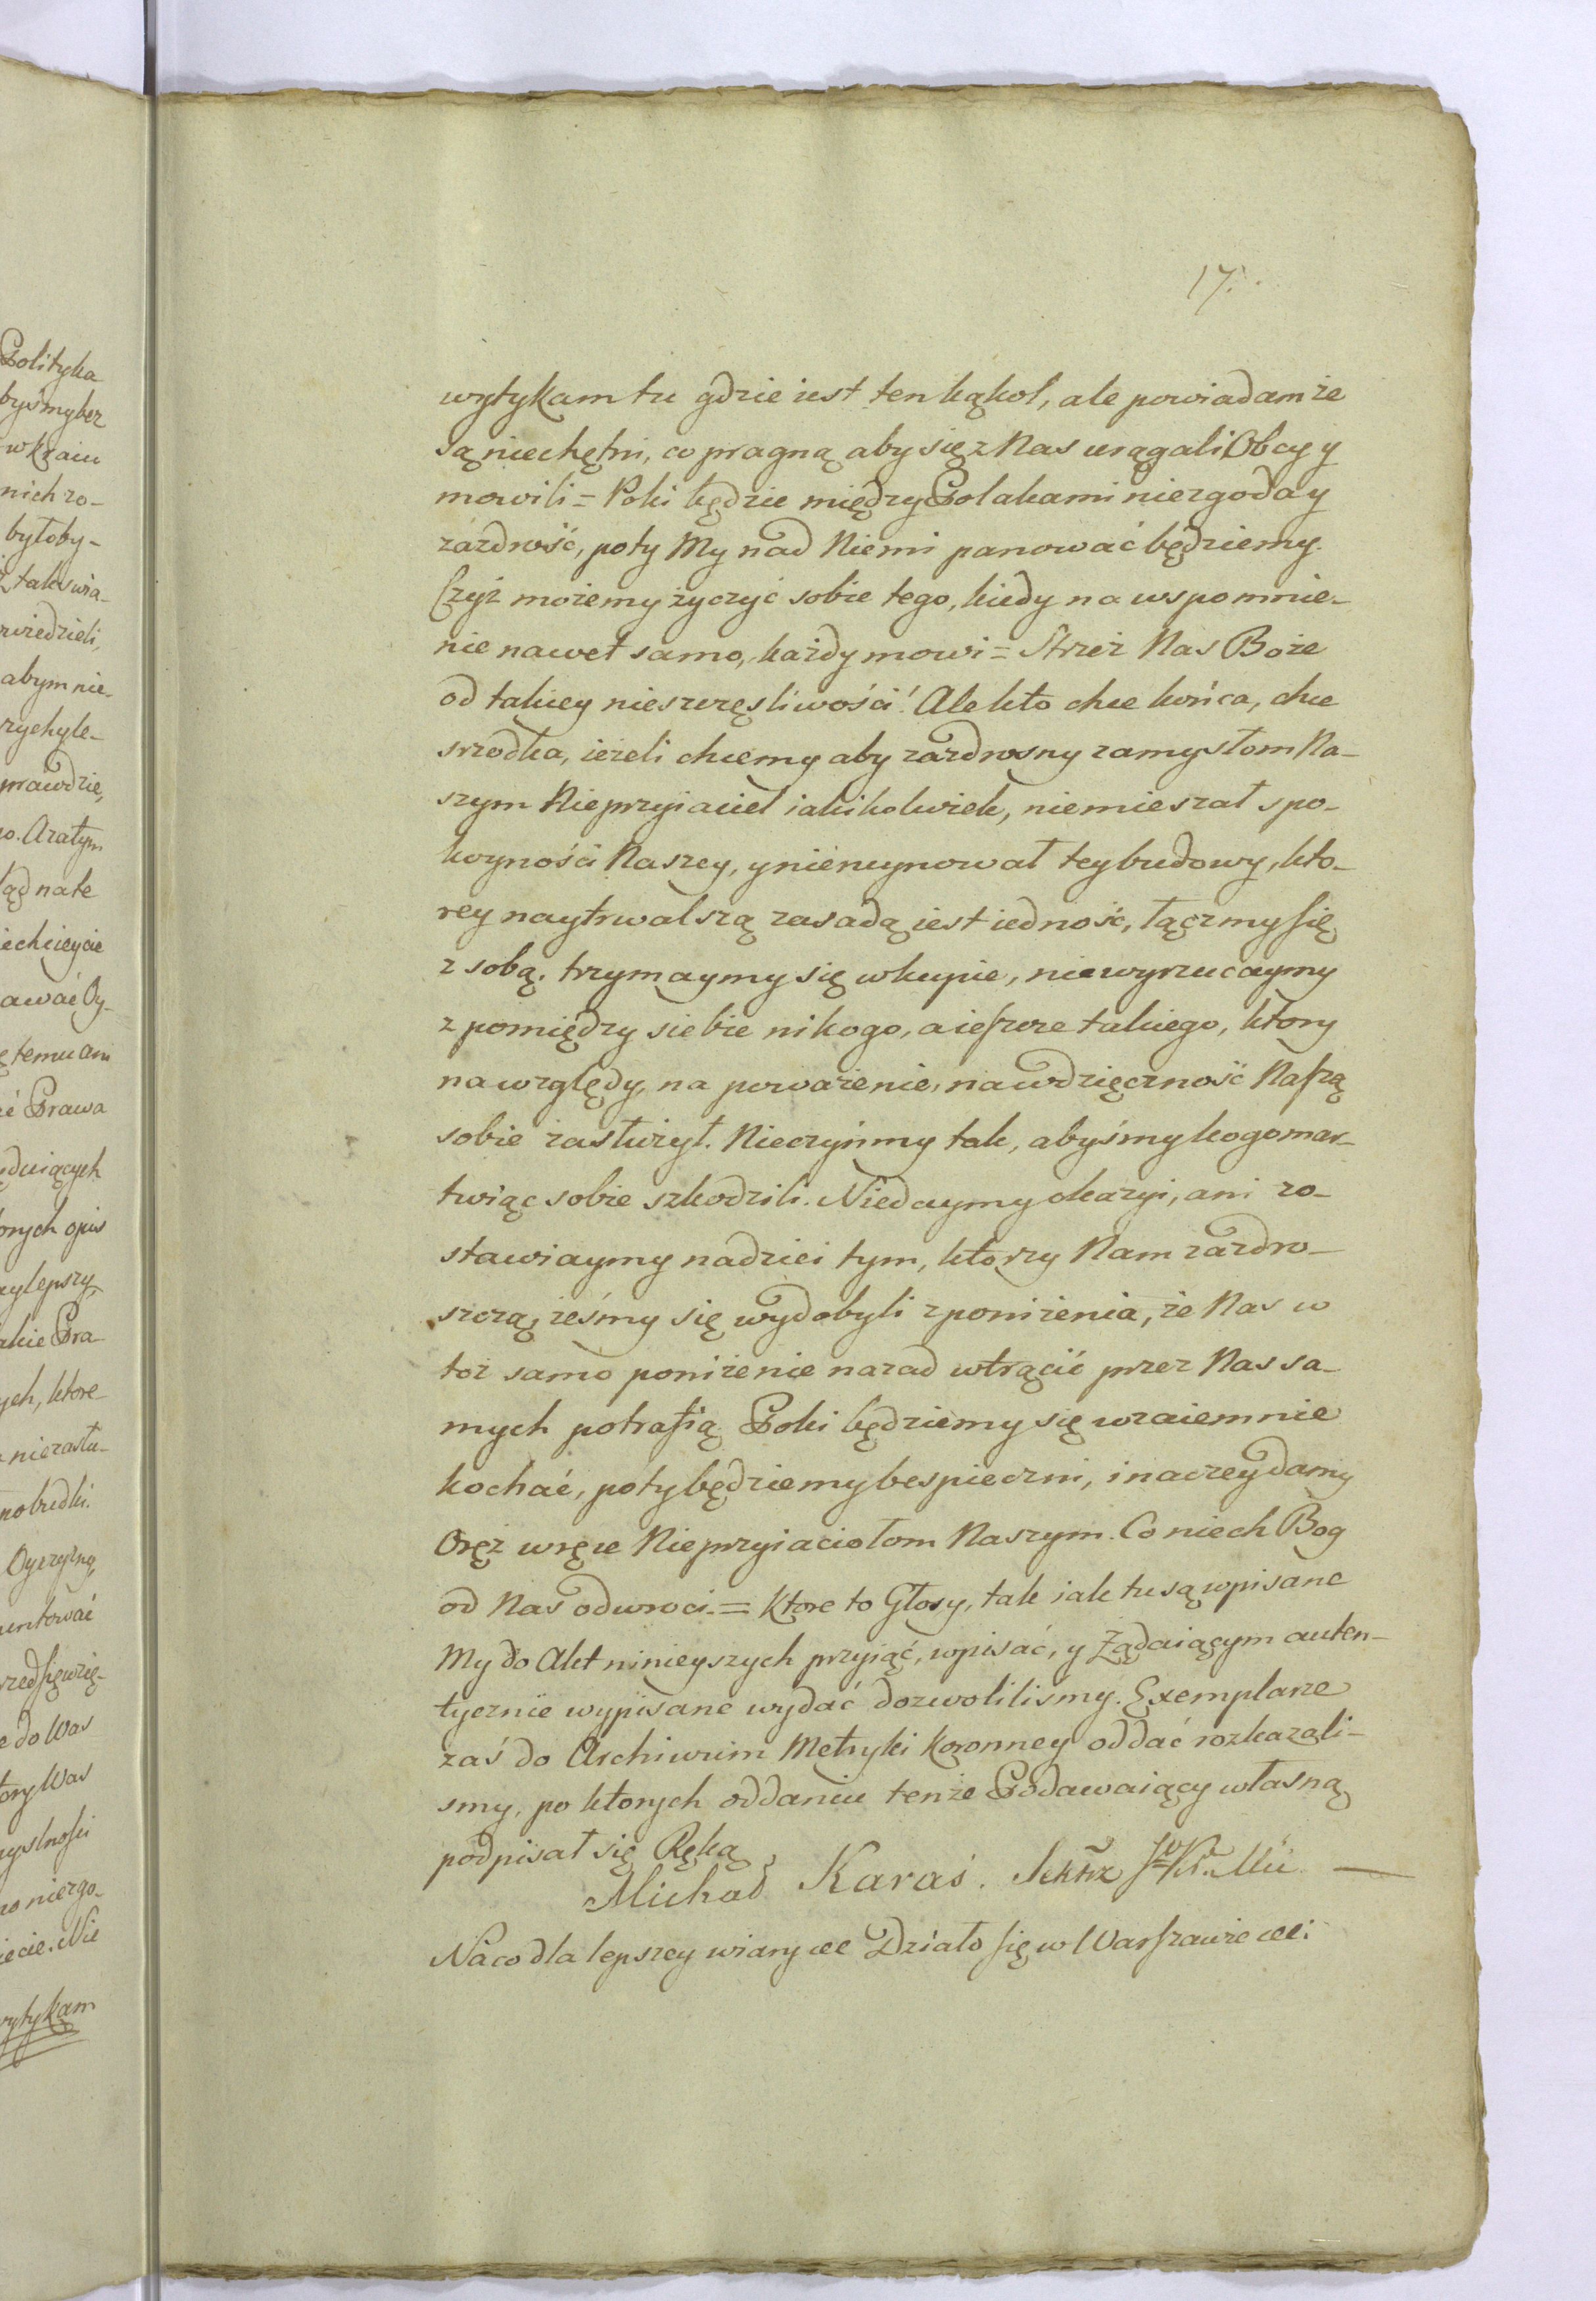 17.
Polityka
byśmy bez
w kraiu
nich zo-
byłoby-
tak wia-
wiedzieli,
abym nie-
prawdzie,
o. A zatym
nale
iechcieycie
awać Oy-
temu ani
ć Prawa
duiących
orych opis
aylepszy,
akie Pra-
ych, ktore-
niezasłu-
pobudki.
Oyczyzną,
untować
rzedsięwzię-
e do Was
tory Was
yslności
no niezgo-
iecie. Nie
wytykam
wytykam tu gdzie iest ten kąkol, ale powiadam że
są niechętni, co pragną aby się z Nas urągali Obcy y
mowili = Poki będzie między Polakami niezgoda y
zazdrość, poty My nad Niemi panować będziemy.
Czyż możemy życzyć sobie tego, kiedy na wspomnie-
nie nawet samo, każdy mowi = Strzeż Nas Boże
od takiey nieszczęśliwości! Ale kto chce końca, chce
srzodka, ieżeli chcemy aby zazdrosny zamysłom Na-
szym Nieprzyiaciel iakikolwiek, niemieszał spo-
koyności Naszey, y nieruynował tey budowy, kto-
rey naytrwalszą zasadą iest iedność, łączmy się
z sobą, trzymaymy się w kupie, niewyrzucaymy
z pomiędzy siebie nikogo, a ieszcze takiego, ktory
na względy, na poważenie, na wdzięczność Naszą
sobie zasłużył. Nieczyńmy tak, abyśmy kogo mar-
twiąc sobie szkodzili. Niedaymy okazyi, ani zo-
stawiaymy nadziei tym, ktorzy Nam zazdro-
szczą, żeśmy się wydobyli z poniżenia, że Nas w
toż samo poniżenie nazad wtrącić przez Nas sa-
mych potrafią. Poki będziemy się wzaiemnie
kochać, poty będziemy bespieczni, inaczey damy
Oręż w ręce Nieprzyiaciołom Naszym. Co niech Bog
od Nas odwroci. = Ktore to Głosy, tak iak tu są wpisane
My do Akt ninieyszych przyiąć, wpisać, y Żądaiącym auten-
tycznie wypisane wydać dozwoliliśmy. Exemplarze
zaś do Archiwum Metryki Koronney oddać rozkazali-
smy, po ktorych oddaniu tenże Podawaiący własną
podpisał się Ręką
Michał Karaś.
Na co dla lepszey wiary etc Działo się w Warszawie etc: